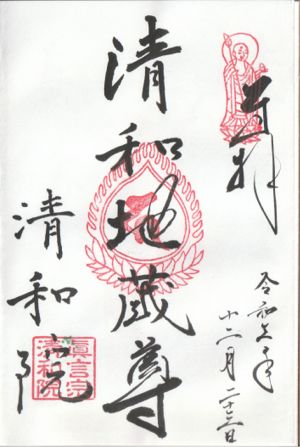 奉拝
令和六年
十二月二十三日
清和地蔵尊
清和院
真言宗
清和院